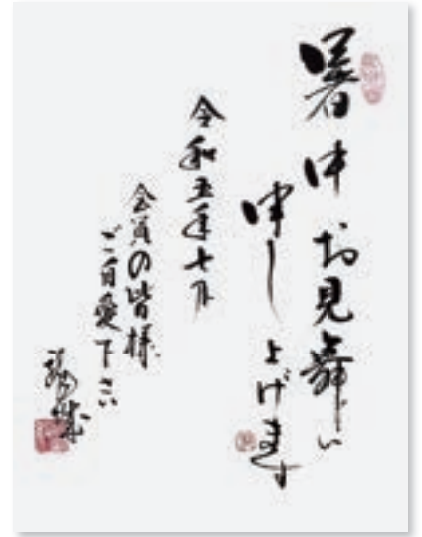 暑中お見舞い
申し上げます
令和五年七月
会員の皆様
ご自愛下さい